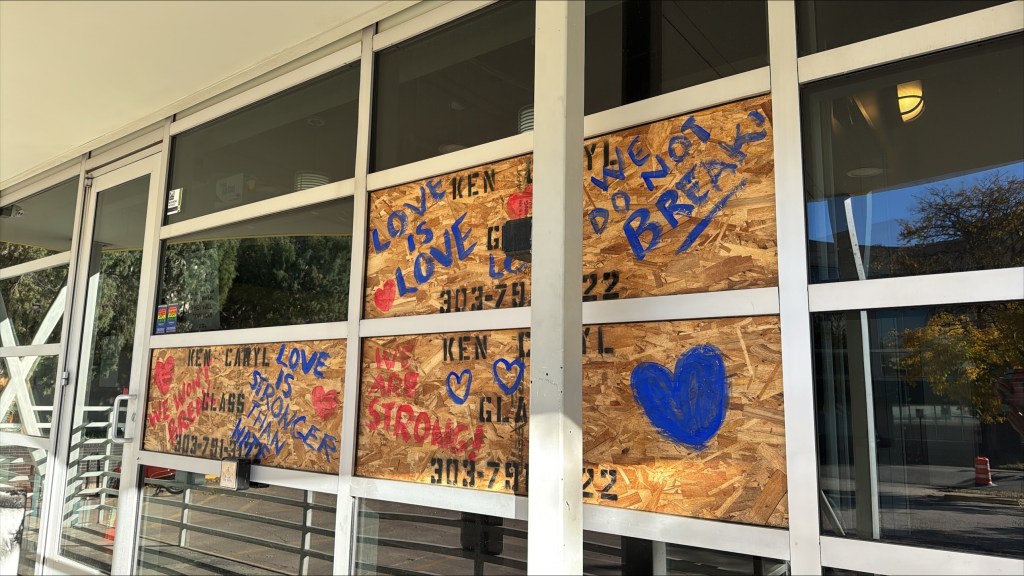 LOVE
IS
LOVE
KEN
YL
303-79
22
WE
DO NOT
BREAK
KEN CARYL
GLASS
303-791
WE WON'T
LOVE
IS
STRONGER
THAN
HATE
WE
ARE
STRONG!
KEN C
YL
GLA
303-79
22